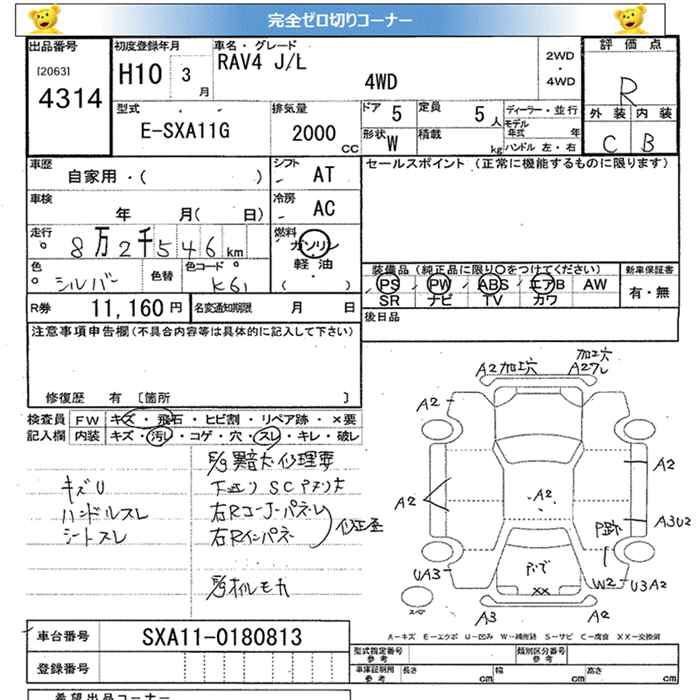 完全ゼロ切りコーナー
出品番号 初度登録年月 車名・グレード 2WD・4WD 評価点
[2063] 4314 H10 3月 RAV4 J/L 4WD R
外装 内装
C B
型式 E-SXA11G 排気量 2000 CC ドア 5 定員 5人 ディーラー・並行
形状 W 積載 kg モデル年式 年 ハンドル 左・右
車歴 自家用・( ) シフト AT セールスポイント (正常に機能するものに限ります)
車検 年 月( 日) 冷房 AC
走行 8万2千546km 燃料 ガソリン 軽油 ( )
色 シルバー 色替 色コード K61
装備品 (純正品に限り○をつけてください) 新車保証書
PS PW ABS エアB AW 有・無
SR ナビ TV カワ
R券 11,160円 名変通知期限 月 日 後日品
注意事項申告欄 (不具合内容等は具体的に記入して下さい)
修復歴 有 [箇所 ]
検査員 FW キズ・飛石・ヒビ割・リペア跡・×要
記入欄 内装 キズ・汚レ・コゲ・穴・スレ・キレ・破レ
キズU
ハンドルスレ
シートスレ
右Rコーナーパネル
右Rインパネ
修正歪
A2加工穴
加工穴
A2ワレ
A2
A2
A2
A2
A3U2
P跡
UA3
XX
W2
U3A2
スペア
A3
A2
A-キズ E-エクボ U-凹み W-補修跡 S-サビ C-腐食 XX-交換済
車台番号 SXA11-0180813
登録番号
型式指定番号 参考 類別区分番号 参考
車庫証明用 参考 長さ cm 幅 cm 高さ cm
希望出品コーナー